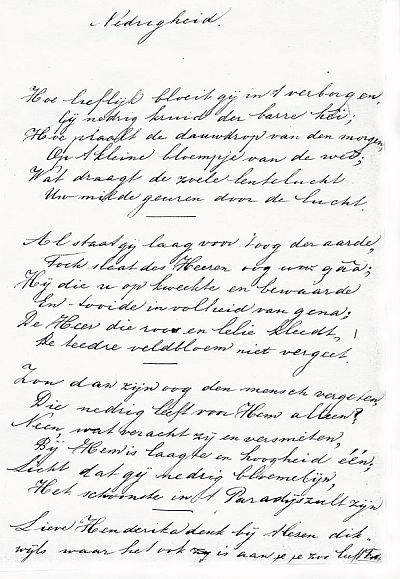 Nedrigheid.
Hoe lieflijk bloeit gij in 't verborgen,
Gij nedrig kruid der barre hei;
Hoe praalt de dauwdrop van den morgen,
Op 't kleine bloempje van de wei;
Wat draagt de zoele lentelucht
Uw milde geuren door de lucht.
Al staat gij laag voor 't oog der aarde,
Toch slaat des Heeren oog uw gâa;
Hij die u op kweekte en bewaarde
En tooide in volheid van gena;
De Heer die roos en lelie kleedt,
De teedre veldbloem niet vergeet.
Zou dan zijn oog den mensch vergeten,
Die nedrig leeft voor Hem alleen?
Neen, wat veracht zij en versmeten,
Bij Hem is laagte en hoogheid één,
Licht dat gij nedrig bloemelijn,
Het schoonste in 't Paradijs zult zijn
Lieve Henderika denk bij lesen dik-
wijls waar het ook zij is aan je je zoo